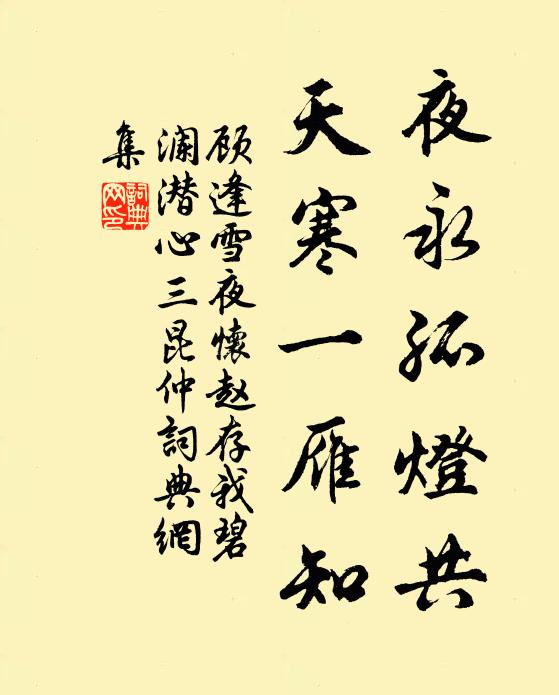 夜永孤燈共
天寒一雁知
顾逢雪夜懷赵存我碧
澜潜心三昆仲詞典網
集
詞典網印